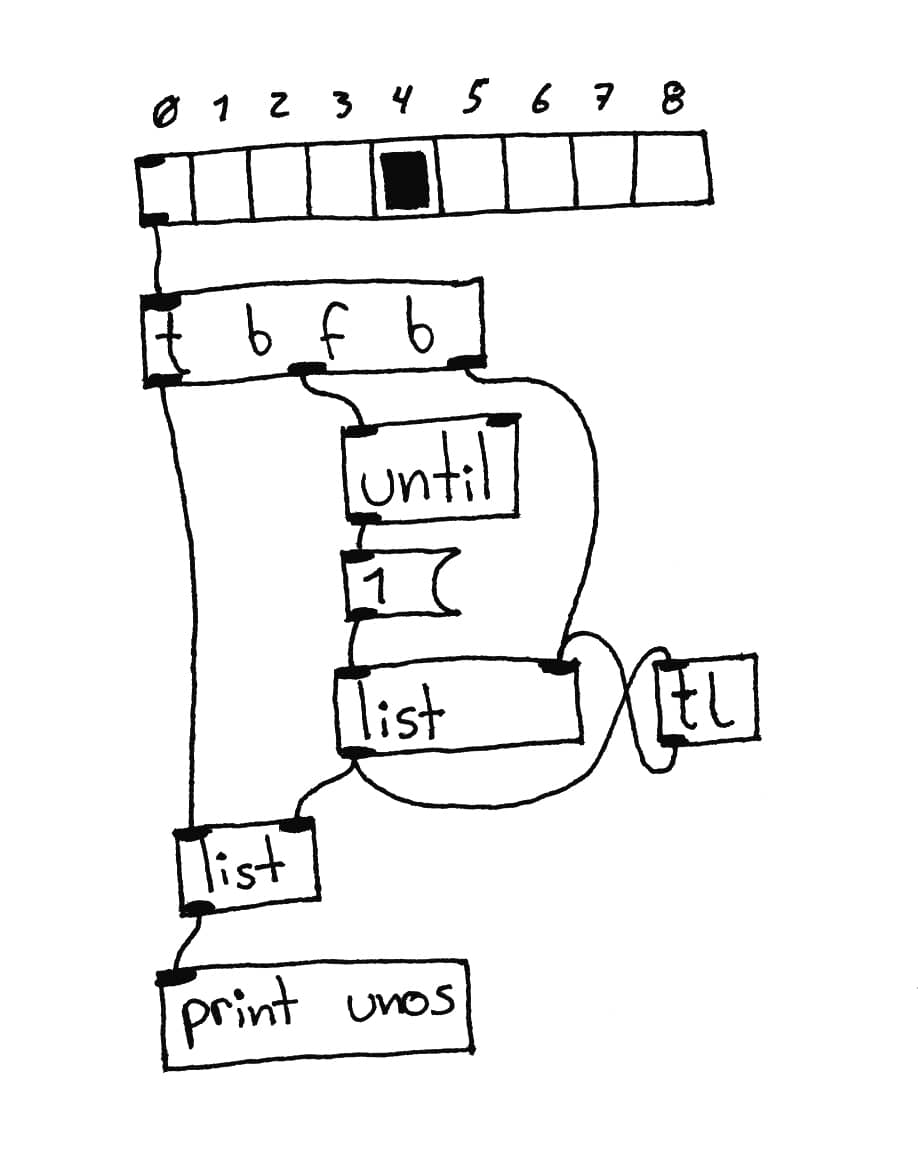 0 1 2 3 4 5 6 7 8
t b f b
until
1
list
tl
list
print unos